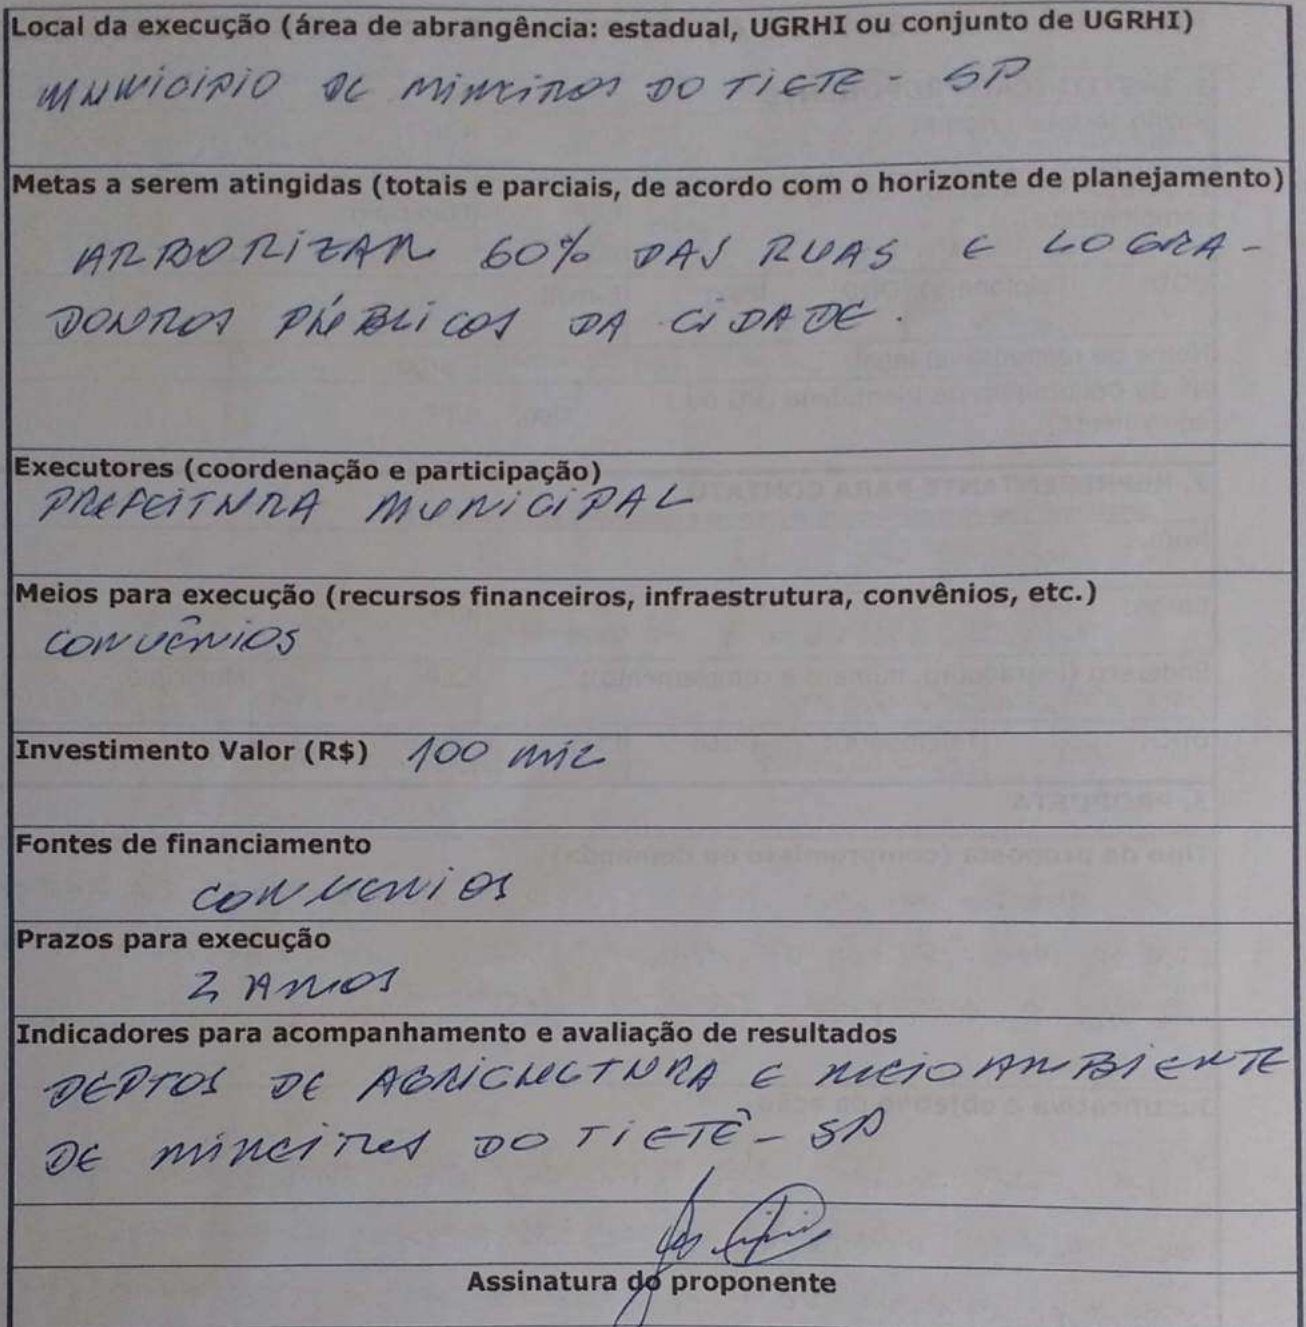 Local da execução (área de abrangência: estadual, UGRHI ou conjunto de UGRHI)
MUNICIPIO DE MINEIROS DO TIETE - SP
Metas a serem atingidas (totais e parciais, de acordo com o horizonte de planejamento)
ARBORIZAR 60% DAS RUAS E LOGRA-
DOUROS PÚBLICOS DA CIDADE.
Executores (coordenação e participação)
PREFEITURA MUNICIPAL
Meios para execução (recursos financeiros, infraestrutura, convênios, etc.)
CONVÊNIOS
Investimento Valor (R$) 100 MIL
Fontes de financiamento
CONVENIOS
Prazos para execução
2 ANOS
Indicadores para acompanhamento e avaliação de resultados
DEPTOS DE AGRICULTURA E MEIO AMBIENTE
DE MINEIROS DO TIETÊ - SP
Assinatura do proponente